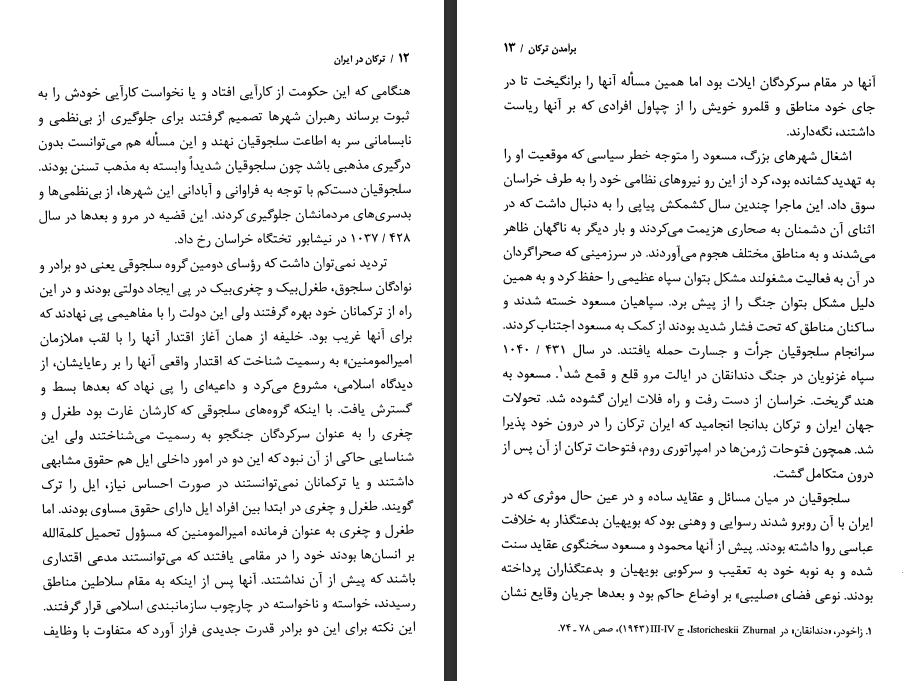 ۱۲ / ترکان در ایران
هنگامی که این حکومت از کارآیی افتاد و یا نخواست کارآیی خودش را به
ثبوت برساند رهبران شهرها تصمیم گرفتند برای جلوگیری از بی‌نظمی و
نابسامانی سر به اطاعت سلجوقیان نهند و این مسأله هم می‌توانست بدون
درگیری مذهبی باشد چون سلجوقیان شدیداً وابسته به مذهب تسنن بودند.
سلجوقیان دست‌کم با توجه به فراوانی و آبادانی این شهرها، از بی‌نظمی‌ها و
بدسری‌های مردمانشان جلوگیری کردند. این قضیه در مرو و بعدها در سال
۴۲۸ / ۱۰۳۷ در نیشابور تختگاه خراسان رخ داد.
تردید نمی‌توان داشت که رؤسای دومین گروه سلجوقی یعنی دو برادر و
نوادگان سلجوق، طغرل‌بیک و چغری‌بیک در پی ایجاد دولتی بودند و در این
راه از ترکمانان خود بهره گرفتند ولی این دولت را با مفاهیمی پی نهادند که
برای آنها غریب بود. خلیفه از همان آغاز اقتدار آنها را با لقب «ملازمان
امیرالمومنین» به رسمیت شناخت که اقتدار واقعی آنها را بر رعایایشان، از
دیدگاه اسلامی، مشروع می‌کرد و داعیه‌ای را پی نهاد که بعدها بسط و
گسترش یافت. با اینکه گروه‌های سلجوقی که کارشان غارت بود طغرل و
چغری را به عنوان سرکردگان جنگجو به رسمیت می‌شناختند ولی این
شناسایی حاکی از آن نبود که این دو در امور داخلی ایل هم حقوق مشابهی
داشتند و یا ترکمانان نمی‌توانستند در صورت احساس نیاز، ایل را ترک
گویند. طغرل و چغری در ابتدا بین افراد ایل دارای حقوق مساوی بودند. اما
طغرل و چغری به عنوان فرمانده امیرالمومنین که مسؤول تحمیل کلمةالله
بر انسان‌ها بودند خود را در مقامی یافتند که می‌توانستند مدعی اقتداری
باشند که پیش از آن نداشتند. آنها پس از اینکه به مقام سلاطین مناطق
رسیدند، خواسته و ناخواسته در چارچوب سازمانبندی اسلامی قرار گرفتند.
این نکته برای این دو برادر قدرت جدیدی فراز آورد که متفاوت با وظایف
برآمدن ترکان / ۱۳
آنها در مقام سرکردگان ایلات بود اما همین مسأله آنها را برانگیخت تا در
جای خود مناطق و قلمرو خویش را از چپاول افرادی که بر آنها ریاست
داشتند، نگه‌دارند.
اشغال شهرهای بزرگ، مسعود را متوجه خطر سیاسی که موقعیت او را
به تهدید کشانده بود، کرد از این رو نیروهای نظامی خود را به طرف خراسان
سوق داد. این ماجرا چندین سال کشمکش پیاپی را به دنبال داشت که در
اثنای آن دشمنان به صحاری هزیمت می‌کردند و بار دیگر به ناگهان ظاهر
می‌شدند و به مناطق مختلف هجوم می‌آوردند. در سرزمینی که صحراگردان
در آن به فعالیت مشغولند مشکل بتوان سپاه عظیمی را حفظ کرد و به همین
دلیل مشکل بتوان جنگ را از پیش برد. سپاهیان مسعود خسته شدند و
ساکنان مناطق که تحت فشار شدید بودند از کمک به مسعود اجتناب کردند.
سرانجام سلجوقیان جرأت و جسارت حمله یافتند. در سال ۴۳۱ / ۱۰۴۰
سپاه غزنویان در جنگ دندانقان در ایالت مرو قلع و قمع شد۱. مسعود به
هند گریخت. خراسان از دست رفت و راه فلات ایران گشوده شد. تحولات
جهان ایران و ترکان بدانجا انجامید که ایران ترکان را در درون خود پذیرا
شد. همچون فتوحات ژرمن‌ها در امپراتوری روم، فتوحات ترکان از آن پس از
درون متکامل گشت.
سلجوقیان در میان مسائل و عقاید ساده و در عین حال موثری که در
ایران با آن روبرو شدند رسوایی و وهنی بود که بویهیان بدعتگذار به خلافت
عباسی روا داشته بودند. پیش از آنها محمود و مسعود سخنگوی عقاید سنت
شده و به نوبه خود به تعقیب و سرکوبی بویهیان و بدعتگذاران پرداخته
بودند. نوعی فضای «صلیبی» بر اوضاع حاکم بود و بعدها جریان وقایع نشان
۱. زاخودر، «دندانقان» در Istoricheskii Zhurnal، ج III-IV (۱۹۴۳)، صص ۷۸ ـ ۷۴.